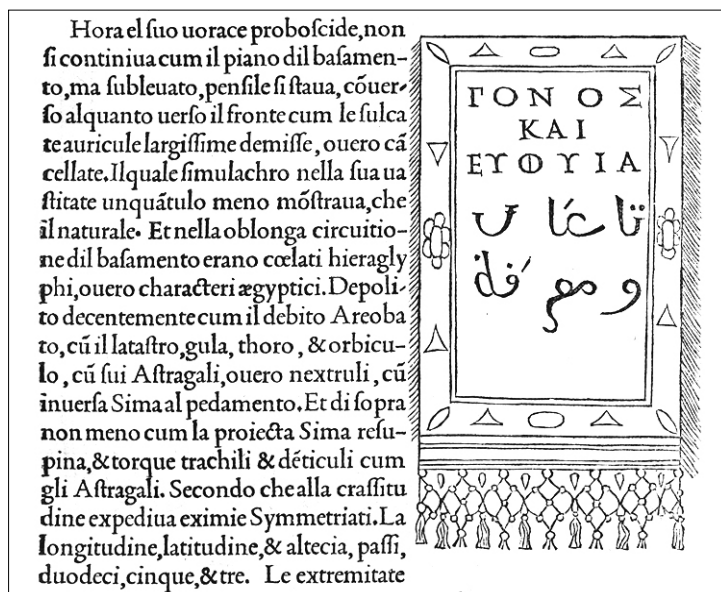 Hora el ſuo uorace proboſcide,non
ſi continiua cum il piano dil baſamen-
to,ma ſubleuato,penſile ſi ſtaua, cõuer-
ſo alquanto uerſo il fronte cum le ſulca
te auricule largiſſime demiſſe, ouero cã
cellate.Ilquale ſimulachro nella ſua ua
ſtitate unquãtulo meno mõſtraua,che
il naturale. Et nella oblonga circuitio-
ne dil baſamento erano cœlati hieragly
phi,ouero characteri ægyptici.Depoli-
to decentemente cum il debito Areoba
to,cũ il lataſtro,gula, thoro, & orbicu-
lo, cũ ſui Aſtragali,ouero nextruli, cũ
inuerſa Sima al pedamento.Et di ſopra
non meno cum la proiecta Sima reſu-
pina,&torque trachili & dẽticuli cum
gli Aſtragali. Secondo che alla craſſitu
dine expediua eximie Symmetriati.La
longitudine,latitudine,& altecia, paſſi,
duodeci,cinque,&tre. Le extremitate
ΓΟΝΟΣ
ΚΑΙ
ΕΥΦΥΙΑ